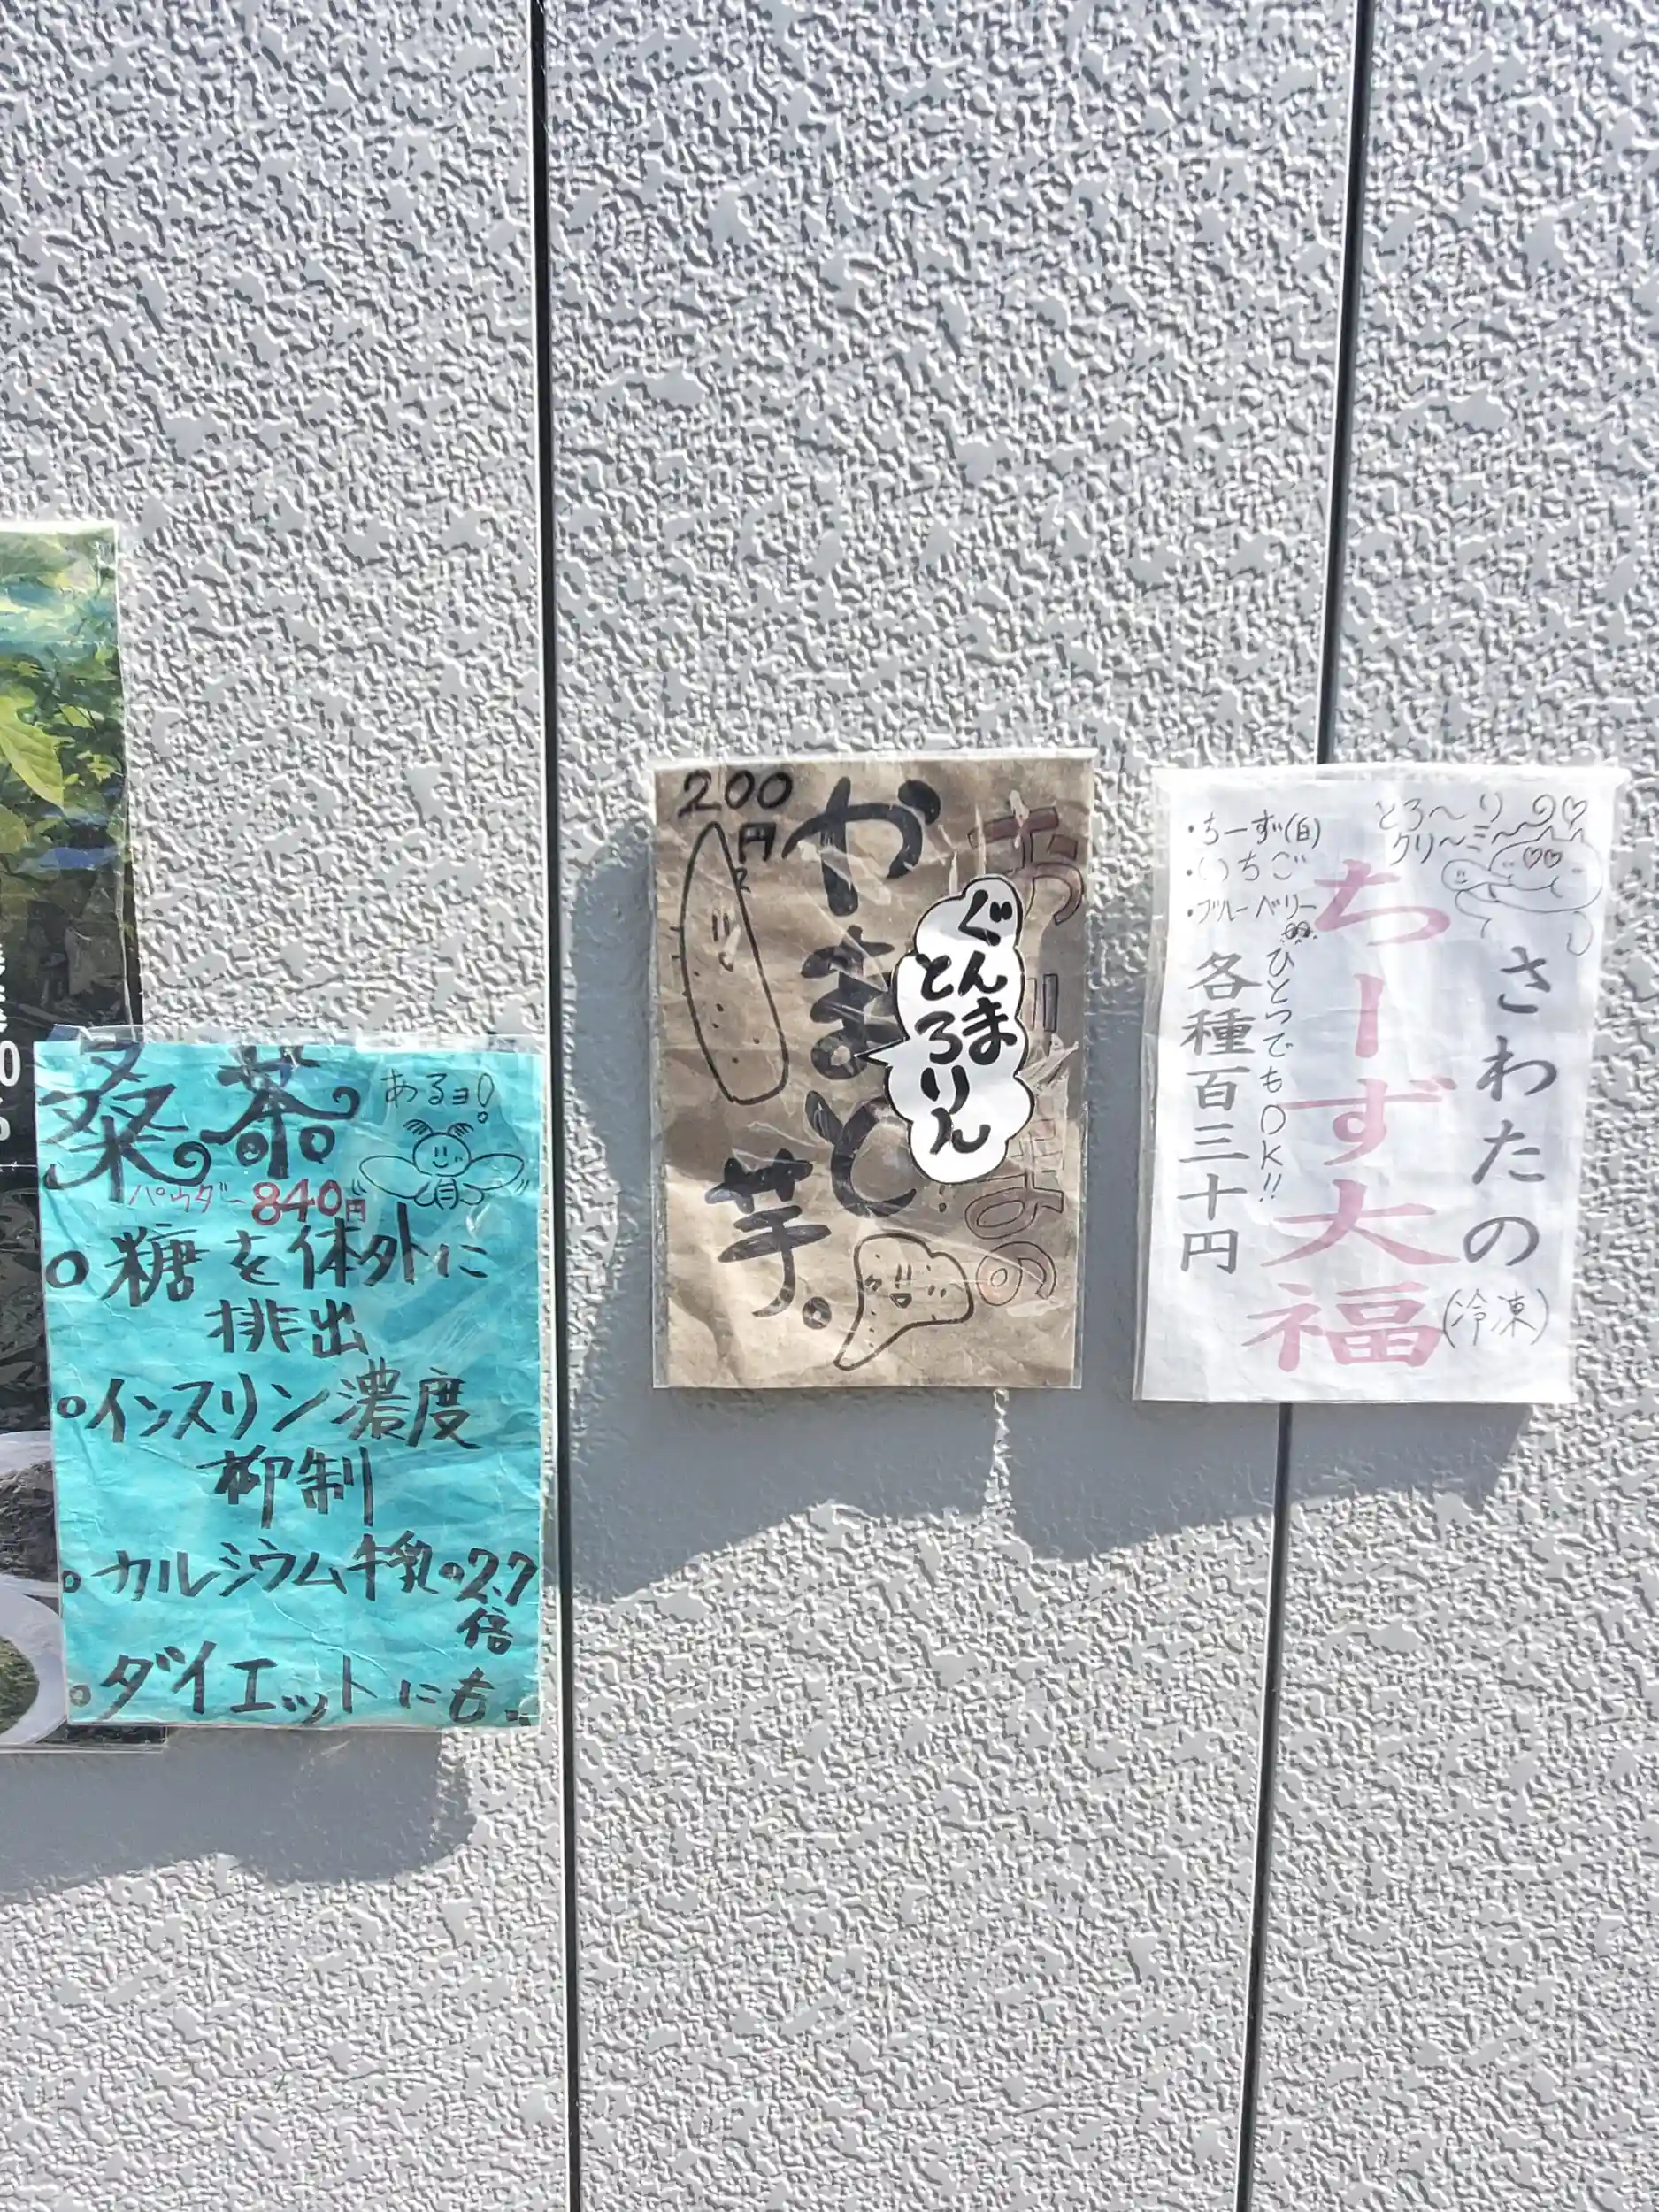 桑茶
あるヨ!
パウダー 840円
○糖を体外に
排出
○インスリン濃度
抑制
○カルシウム牛乳の27
倍
○ダイエットにも
200
円
やまと
芋。
ぐんま
とろりん
とろ〜りの♡
クリ〜ミ〜
さわたの
(冷凍)
ちーず大福
・ちーず(白)
・いちご
・ブルーベリー
ひとつでもOK!!
各種百三十円